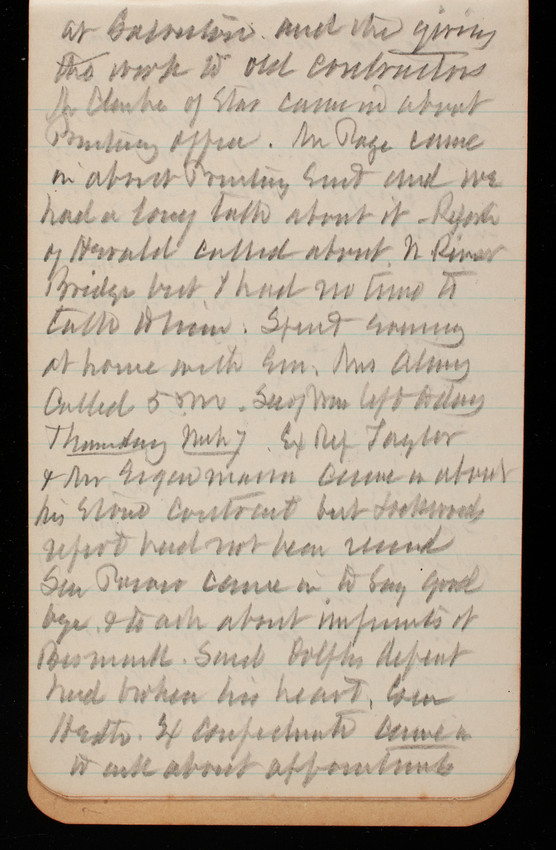 at Galveston and the giving
the work to old contractors
Mr Clarke of Star came in about
Printing office. Mr Page came
in about Printing and we
had a long talk about it - Reporter
of Herald called about N River
Bridge but I had no time to
talk to him. Spent evening
at home with Em. Mrs
Called 5 PM. Sec of War left today
Thursday Mch 7. Ex Rep Taylor
& Mr came in about
his Stone Contract but Lockwoods
report had not been received
Sen came in to say good
bye. & to ask about impvments at
Bismarck. Said Dolphs defeat
had broken his heart, Genr
Heath. Ex confederate came in
to ask about appointments